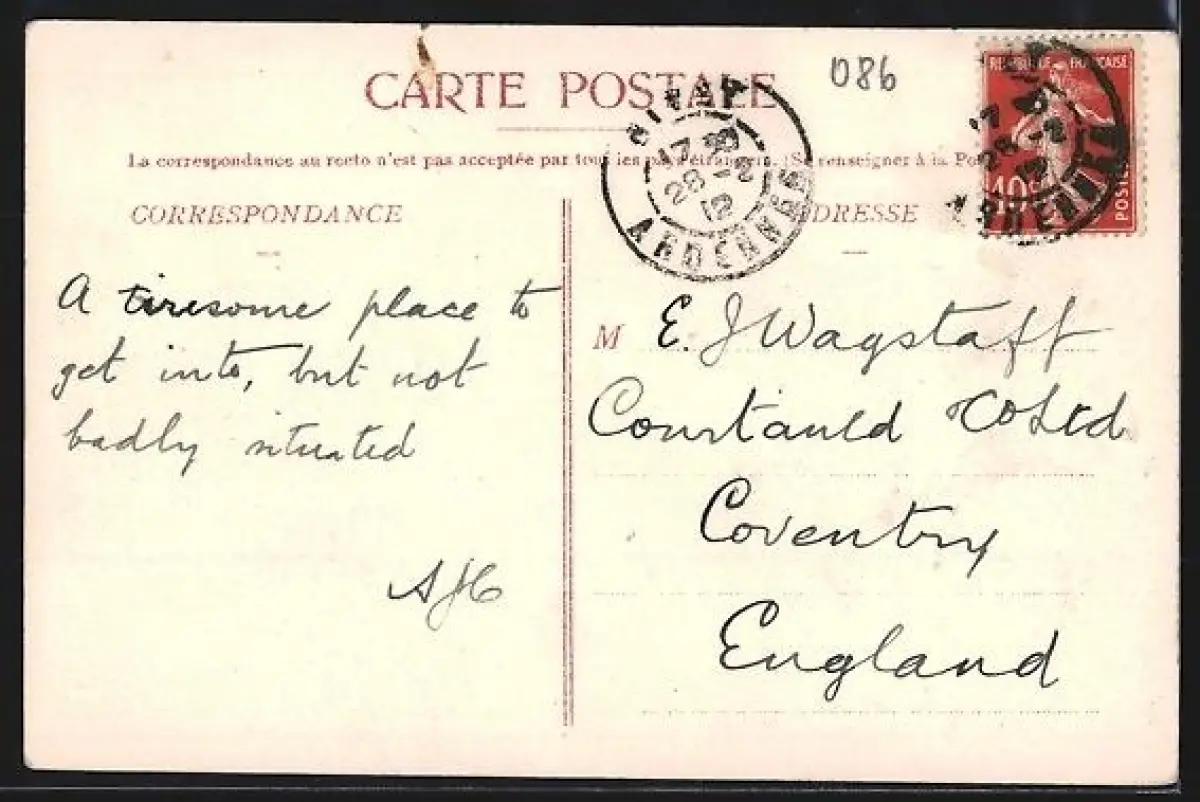 CARTE POSTALE
086
REPUBLIQUE FRANÇAISE
10c
POSTES
La correspondance au recto n'est pas acceptée par tous les pays étrangers. (Se renseigner à la Pos
CORRESPONDANCE
ADRESSE
17
28 - 2
12
ARDENNES
17
28 - 2
12
ARDENNES
A tiresome place to
get into, but not
badly situated
AJC
M E. J Wagstaff
Courtauld & Co Ltd
Coventry
England